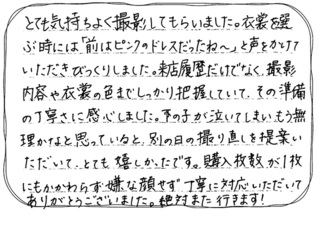 とても気持ちよく撮影してもらいました。衣裳を選
ぶ時には「前はピンクのドレスだったね〜」と声をかけて
いただきびっくりしました。来店履歴だけでなく、撮影
内容や衣裳の色までしっかり把握していて、その準備
の丁寧さに感心しました。下の子が泣いてしまい、もう無
理かなと思っていると、別の日の撮り直しを提案い
ただいて、とても嬉しかったです。購入枚数が1枚
にもかかわらず嫌な顔せず丁寧に対応いただいて
ありがとうございました。絶対また行きます!